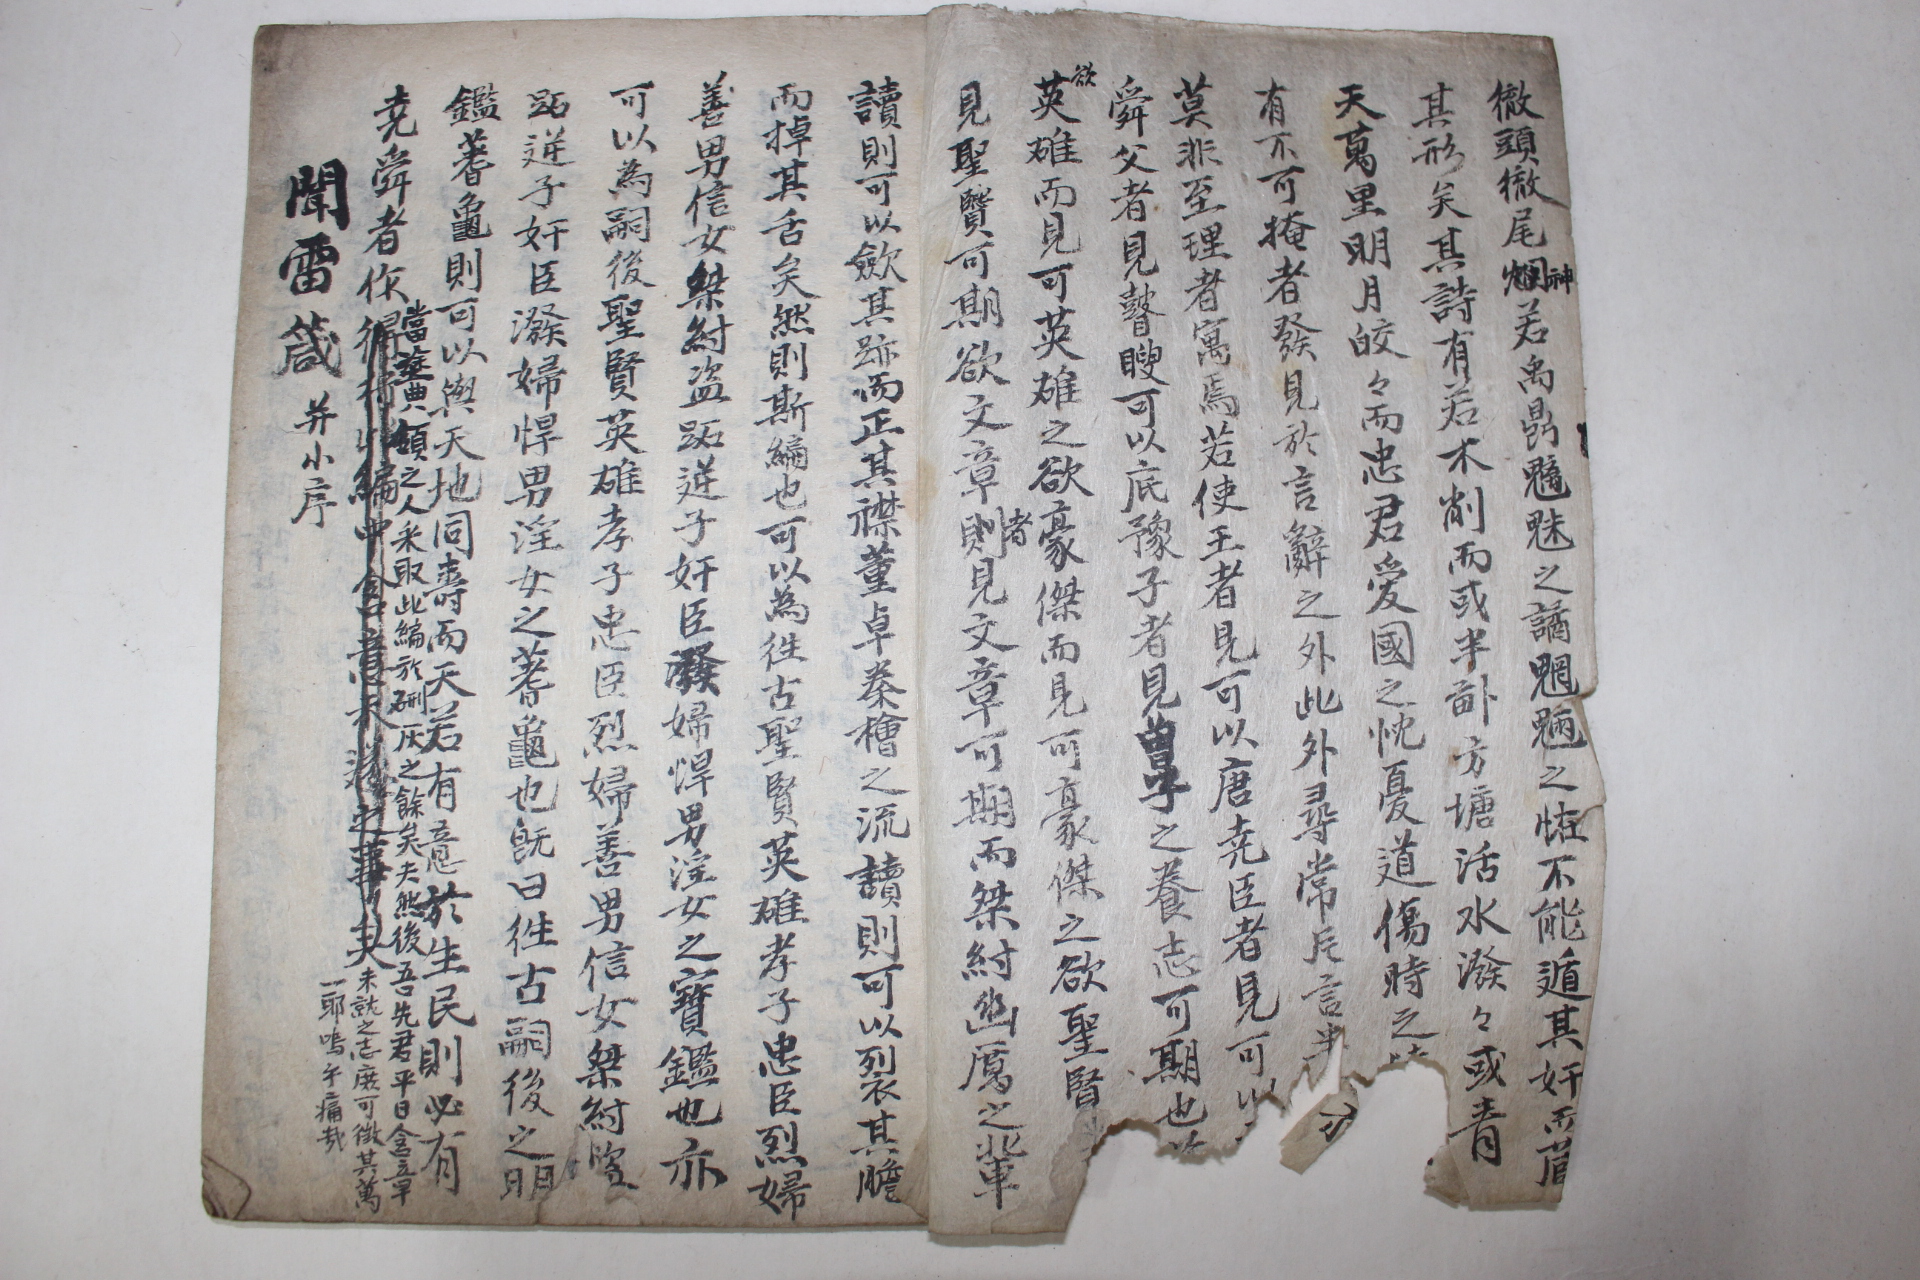 徹頭徹尾烱神若禹鼎魑魅之謫魍魎之恠不能遁其奸而
其形矣其詩有若不削而或半畝方塘活水潑々或青
天萬里明月皎々而忠君愛國之忱憂道傷時之
有不可掩者發見於言辭之外此外尋常片言
莫非至理者寓焉若使王者見可以唐堯臣者見可以
舜父者見瞽瞍可以底豫子者見曽子之養志可期也
欲
英雄而見可英雄之欲豪傑而見可豪傑之欲聖賢
見聖賢可期欲文章則者見文章可期而桀紂幽厲之輩
讀則可以歛其跡而正其襟董卓秦檜之流讀則可以裂其膽
而掉其舌矣然則斯編也可以為徃古聖賢英雄孝子忠臣烈婦
善男信女桀紂盗跖逆子奸臣發婦悍男淫女之寶鑑也亦
可以為嗣後聖賢英雄孝子忠臣烈婦善男信女桀紂盗
跖逆子奸臣潑婦悍男淫女之蓍龜也旣曰徃古嗣後之明
鑑蓍龜則可以與天地同壽而天若有意於生民則必有
當難典頗之人采取此編於刪灰之餘矣夫然後吾先君平日含章
堯舜者作得
編中含意未
未就之志庶可徵其萬
一耶嗚乎痛哉
聞雷箴 并小序